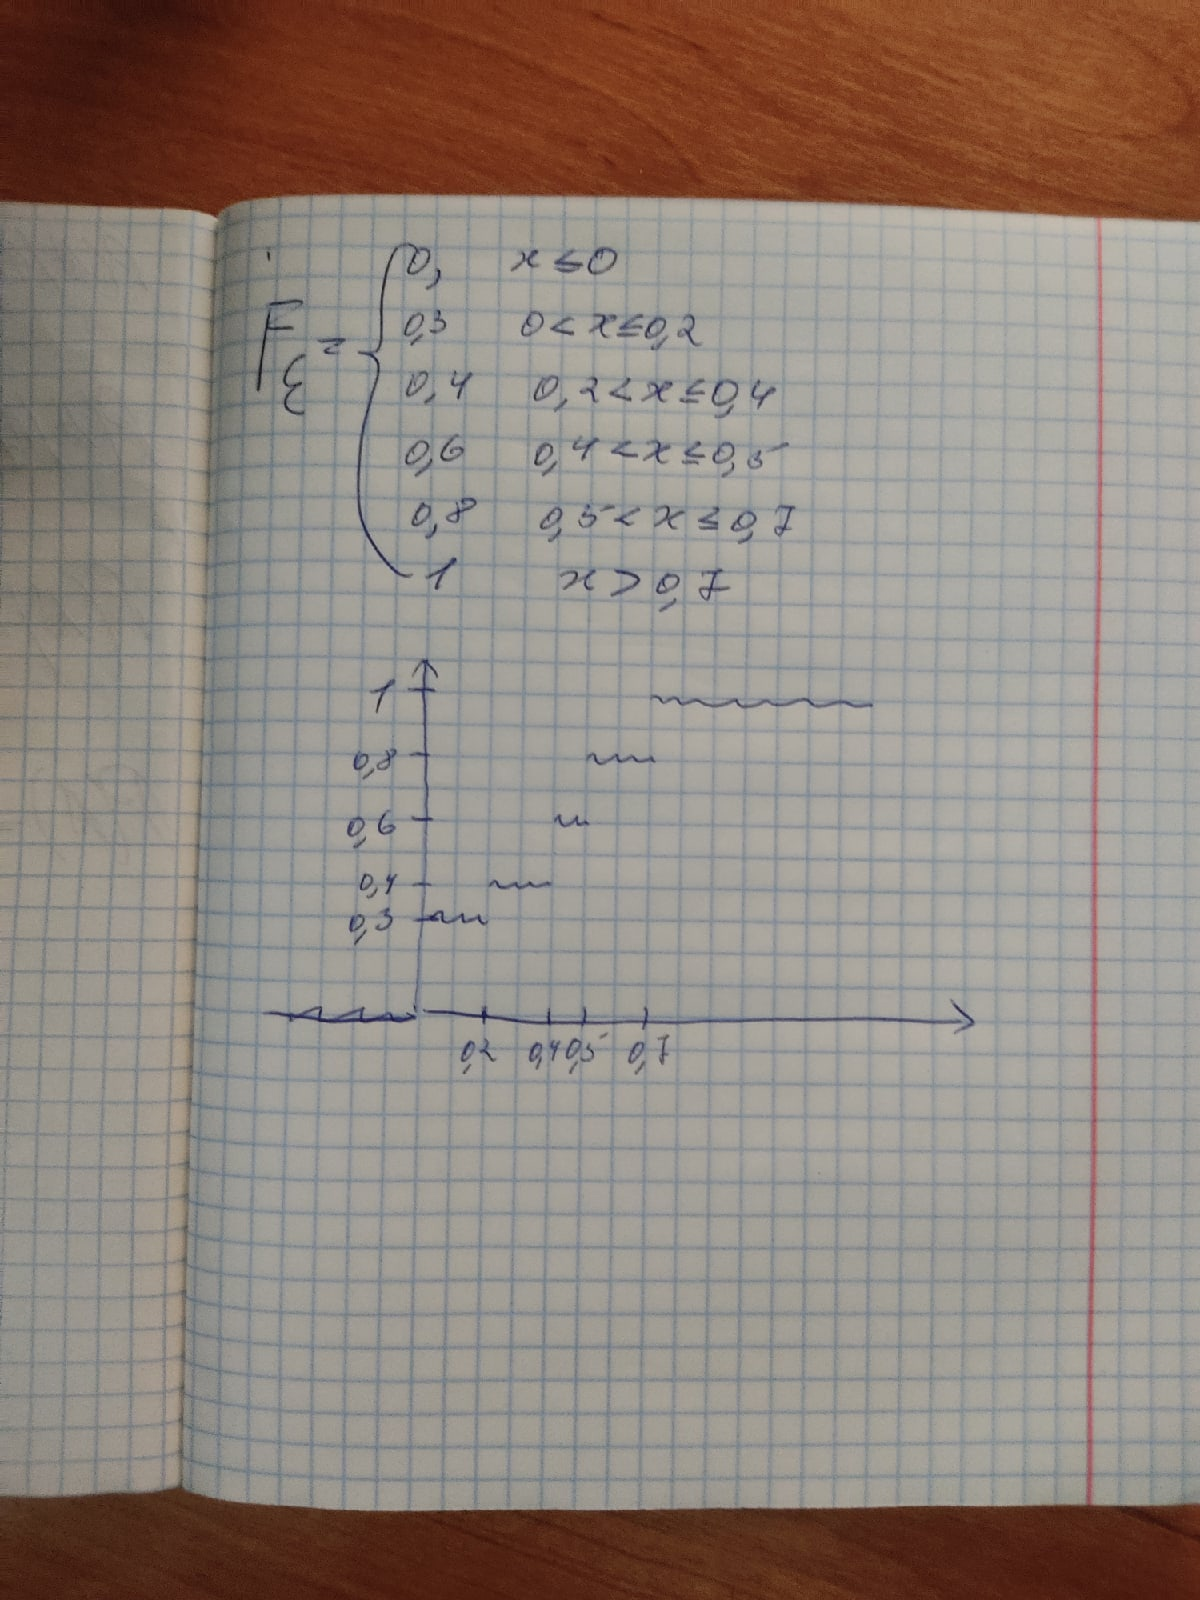 0, x ≤ 0
0,3 0 < x ≤ 0,2
F ξ =
0,4 0,2 < x ≤ 0,4
0,6 0,4 < x ≤ 0,5
0,8 0,5 < x ≤ 0,7
1 x > 0,7
1
0,8
0,6
0,4
0,3
0,2 0,4 0,5 0,7